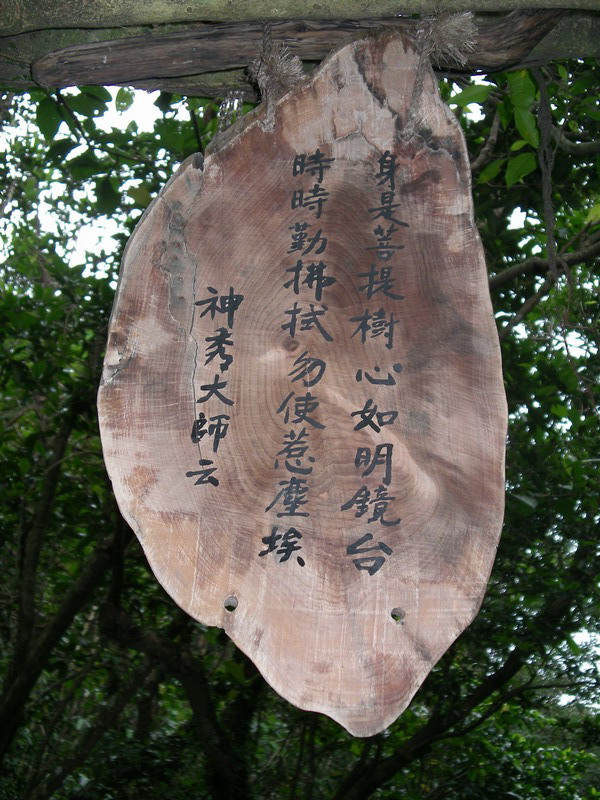 身是菩提樹心如明鏡台
時時勤拂拭勿使惹塵埃
神秀大師云